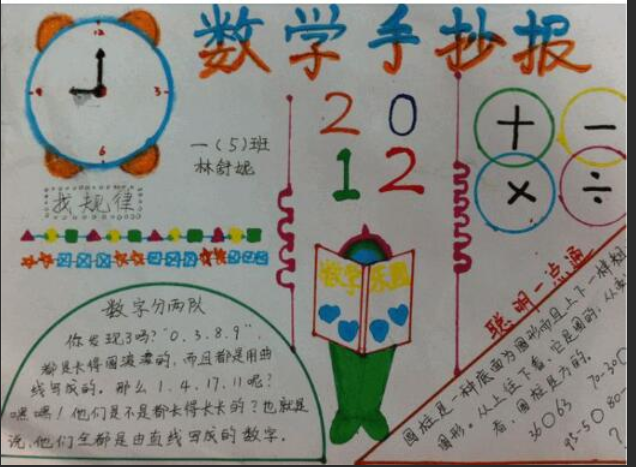 数学手抄报
12
3
6
9
一(5)班
林舒妮
20
12
+
−
×
÷
找规律
数学乐园
数字分两队
你发现了吗？"0.3.8.9"
都是长得圆滚滚的，而且都是用曲
线写成的。那么1.4.17.11呢？
嘿嘿！他们是不是都长得长长的？也就是
说，他们全都是由直线写成的数字。
聪明一点通
圆柱是一种底面为圆形而且上下一样粗
图形。从上往下看，它是圆的；从
看，圆柱是方的。
36○63
70-30○
95-5○80-
?